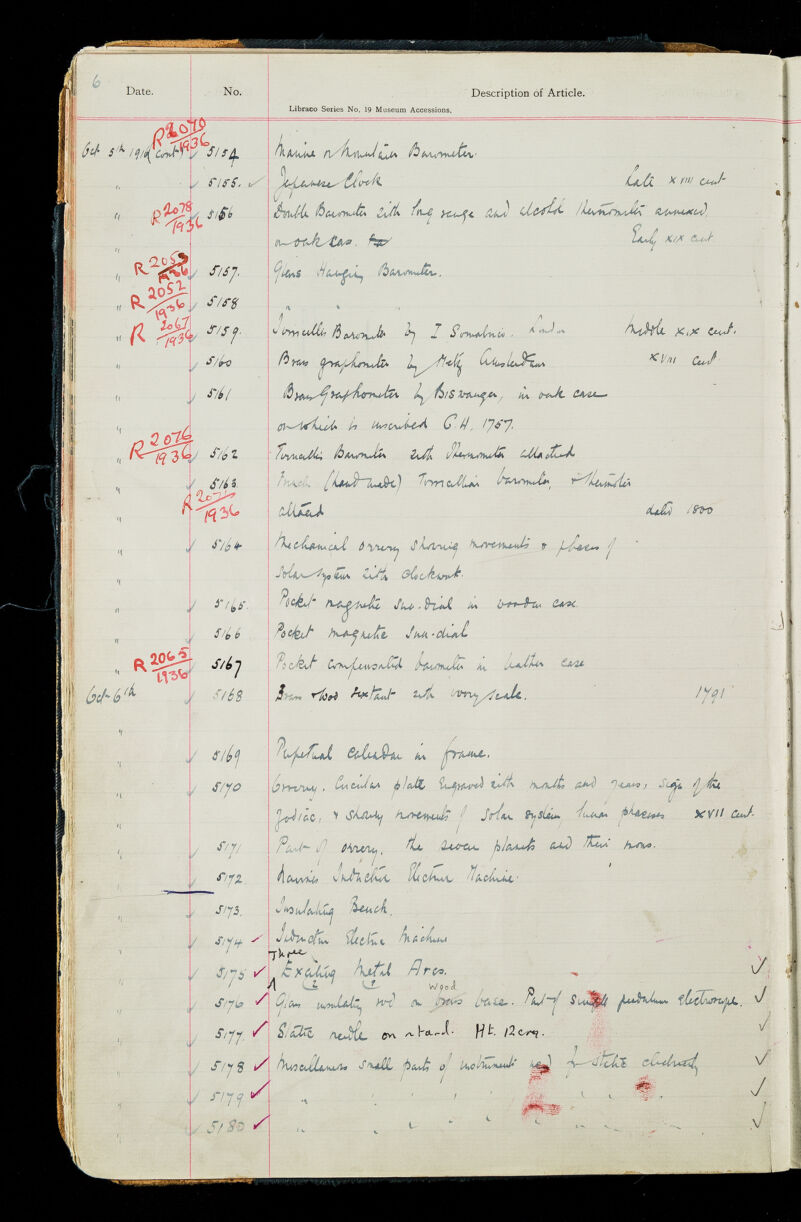 6
Date. No. Description of Article.
Libraco Series No. 19 Museum Accessions.
R 2070
1936
Oct 5th 191 (cont) 5154 Marine or Mountain Barometer.
" 5155. Japanese Clock Late XVIII cent
" R 2078 1936 5156 Double Barometer with long range and alcohol thermometer annexed.
" on oak cas. Early XIX cent
" R 2053 1936 5157. Glass Hanging Barometer.
" R 2052 1936 5158 " " "
" R 2067 1936 5159. Torricellis Barometer by I Somalvico. London Middle XIX cent.
" 5160 Brass graphometer by Metz Amsterdam XVIII cent
" 5161 Brass Graphometer by Biswanger, in oak case
on which is inscribed G.H. 1757.
" R 2076 1936 5162 Torricellis Barometer with Thermometer attached
" 5163 French (hand made) Torricellian barometer, & thermometer
" R 2071 1936 attached dated 1800
" 5164 Mechanical orrery showing movements & phases of
" Solar system with clockwork.
" 5165. Pocket magnetic sun-dial in wooden case.
" 5166 Pocket magnetic sun-dial
" R 2065 1936 5167 Pocket compensated barometer in leather case
Oct 6th 5168 Brass & wood sextant with ivory scale. 1791
" 5169 Perpetual calendar in frame.
" 5170 Orrery. Circular plate engraved with months and years, signs of the
zodiac, & showing movements of solar system, lunar phases XVII cent.
" 5171 Part of orrery, the seven planets and their moons.
5172. Induction Electric Machine.
" 5173. Insulating Bench.
" 5174 Induction Electric Machine
Three
" 5175 Exciting Metal Arcs.
2 1
Wood
" 5176 Glass insulating rod on brass base. Part of single pendulum electroscope.
5177. Static needle on stand. Ht. 12cm.
" 5178 Miscellaneous small parts of instrument used for static electricity
5179 " " " " " "
" 5180 " " " " " "